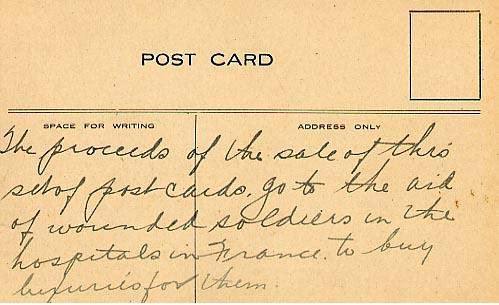 POST CARD
SPACE FOR WRITING
ADDRESS ONLY
The proceeds of the sale of this
set of post cards, go to the aid
of wounded soldiers in the
hospitals in France. to buy
luxuries for them.